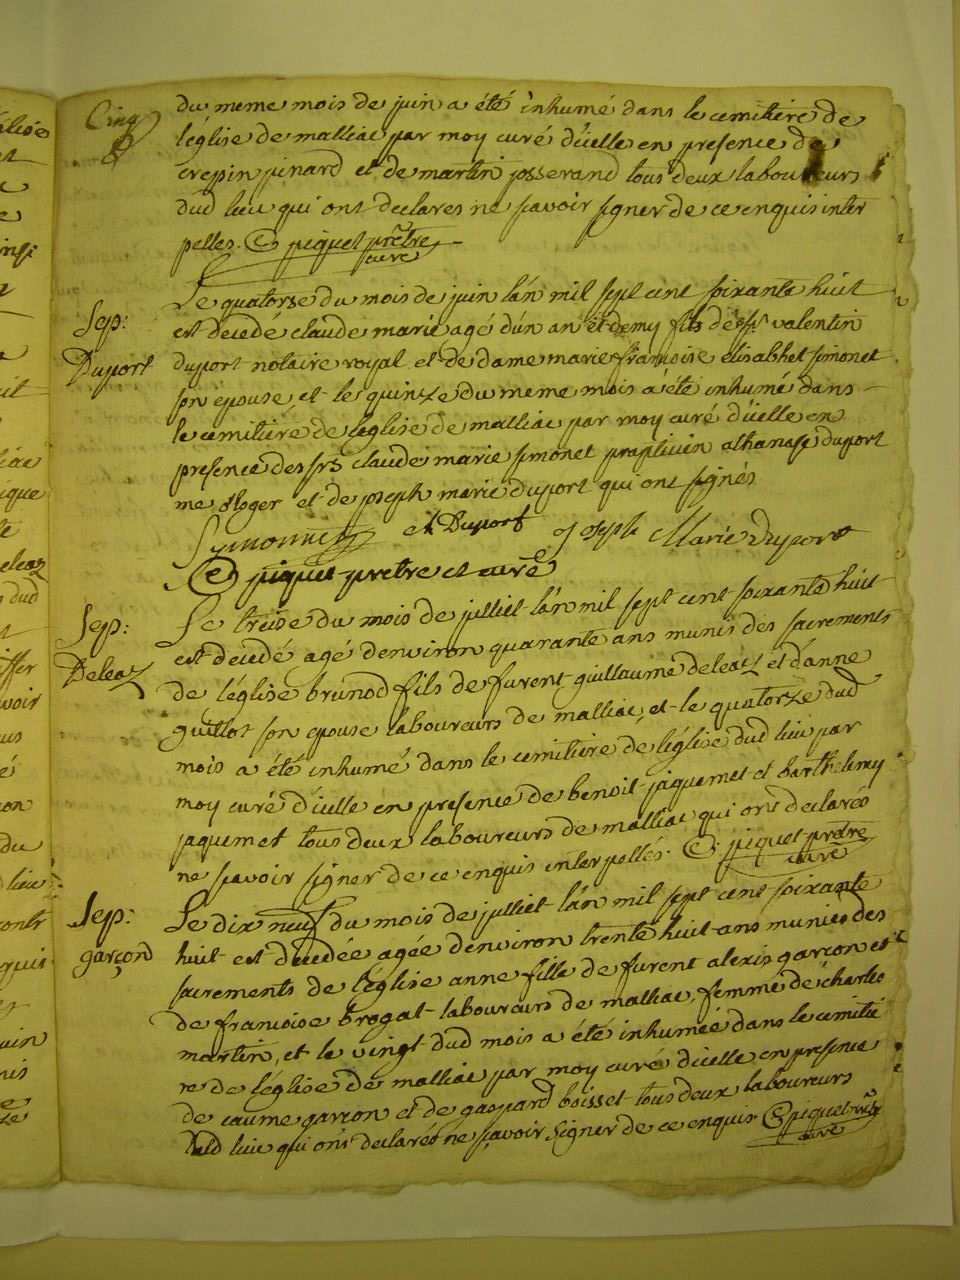 Cinq
du meme mois de juin a été inhumé dans le cemitiere de
l'église de malliac par moy curé d'icelle en presence de
crepin pinard et de martin josserand tous deux laboureurs
dud lieu qui ont declares ne savoir signer de ce enquis inter
pelles. piquet prêtre
curé
Sep:
Duport
Le quatorse du mois de juin l'an mil sept cent soixante huit
est decedé claude marie agé d'un an et demy fils de sr valentin
duport notaire royal et de dame marie francoise elisabhet simonet
son epouse, et le quinze du meme mois a été inhumé dans
le cemitiére de l'eglise de malliac par moy curé d'icelle en
presence des srs claude marie simonet praticien athanase duport
me et de joseph marie duport qui ont signés
Symonnet Duport joseph Marie Duport
piquet pretre et curé
Sep:
Deleaz
Le treise du mois de julliet l'an mil sept cent soixante huit
est decedé agé d'environ quarante ans munis des sacrements
de l'église brunod fils de furent guillaume deleaz et d'anne
guillot son epouse laboureurs de malliac, et le quatorze dud
mois a été inhumé dans le cemitiere de l'église dud lieu par
moy curé d'icelle en presence de benoit jaquemet et barthelemy
jaquemet tous deux laboureurs de malliac qui ont declarés
ne savoir signer de ce enquis interpellés. piquet prêtre
curé
Sep:
garçond
Le dix neuf du mois de julliet l'an mil sept cent soixante
huit est decedée agée d'environ trente huit ans munies des
sacrements de l'église anne fille de furent alexis garçon et
de francoise brogat laboureurs de malliac, femme de charles
martin, et le vingt dud mois a été inhumée dans le cemitié
re de l'église de malliac par moy curé d'icelle en presence
de garçon et de gaspard boisset tous deux laboureurs
dud lieu qui ont declarés ne savoir signer de ce enquis piquet
curé